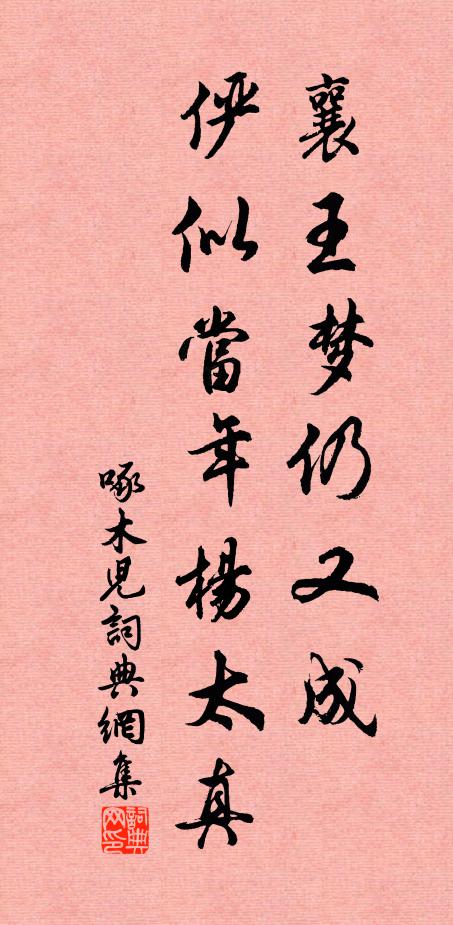 襄王梦仍又成
俨似當年楊太真
啄木児詞典網集
詞典网印